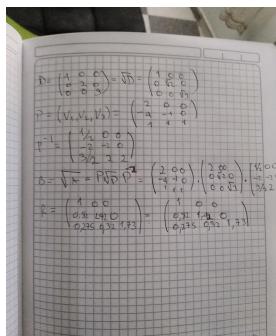 D = (1 0 0
0 2 0
0 0 3) = √D = (1 0 0
0 √2 0
0 0 √3)
P = (V₁, V₂, V₃) = (2 0 0
-4 -1 0
1 1 1)
P⁻¹ = (1/2 0 0
-2 -2 0
3/2 2 2)
= √A = P√D P⁻¹ = (2 0 0
-4 -1 0
1 1 1) · (2 0 0
0 √2 0
0 0 √3) · (1/2 0 0
-2 -2
3/2 2
R = (1 0 0
0,92 1,42 0
0,275 0,32 1,73) = (1 0 0
0,92 1,42 0
0,275 0,32 1,73)